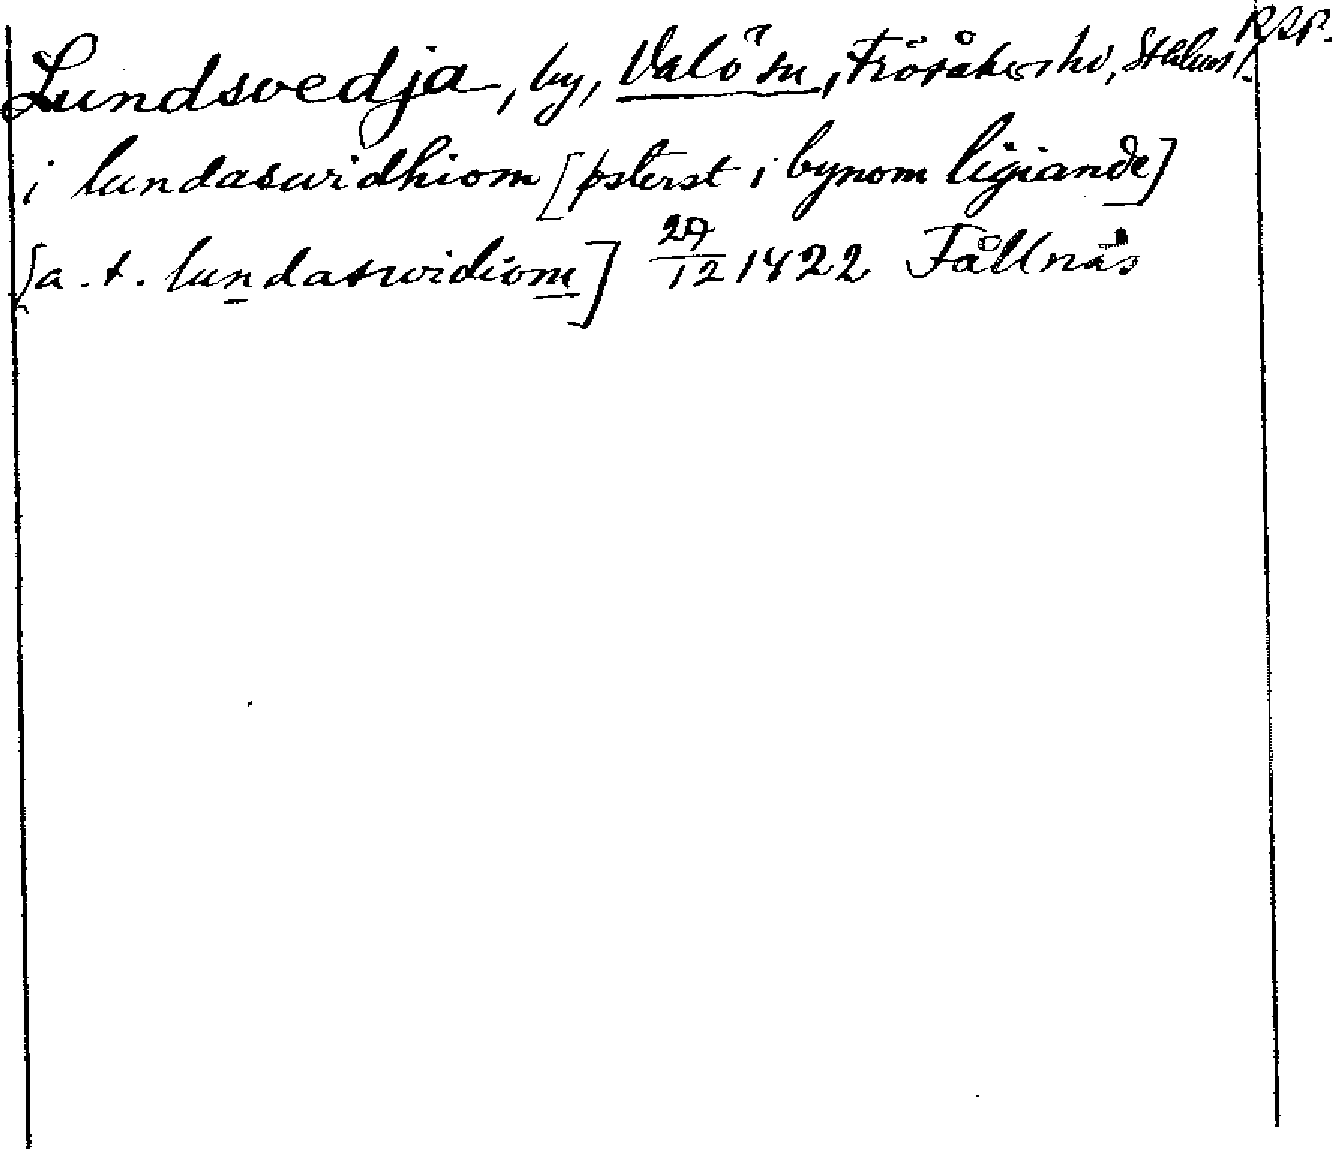 Lundsvedja, by, Valö sn, Frösåkers hd, Sthlms l. RSP.
i lundaswidhiom [østerst i bynom ligiande]
[a. t. lundaswidiom] 29/12 1422 Fållnäs